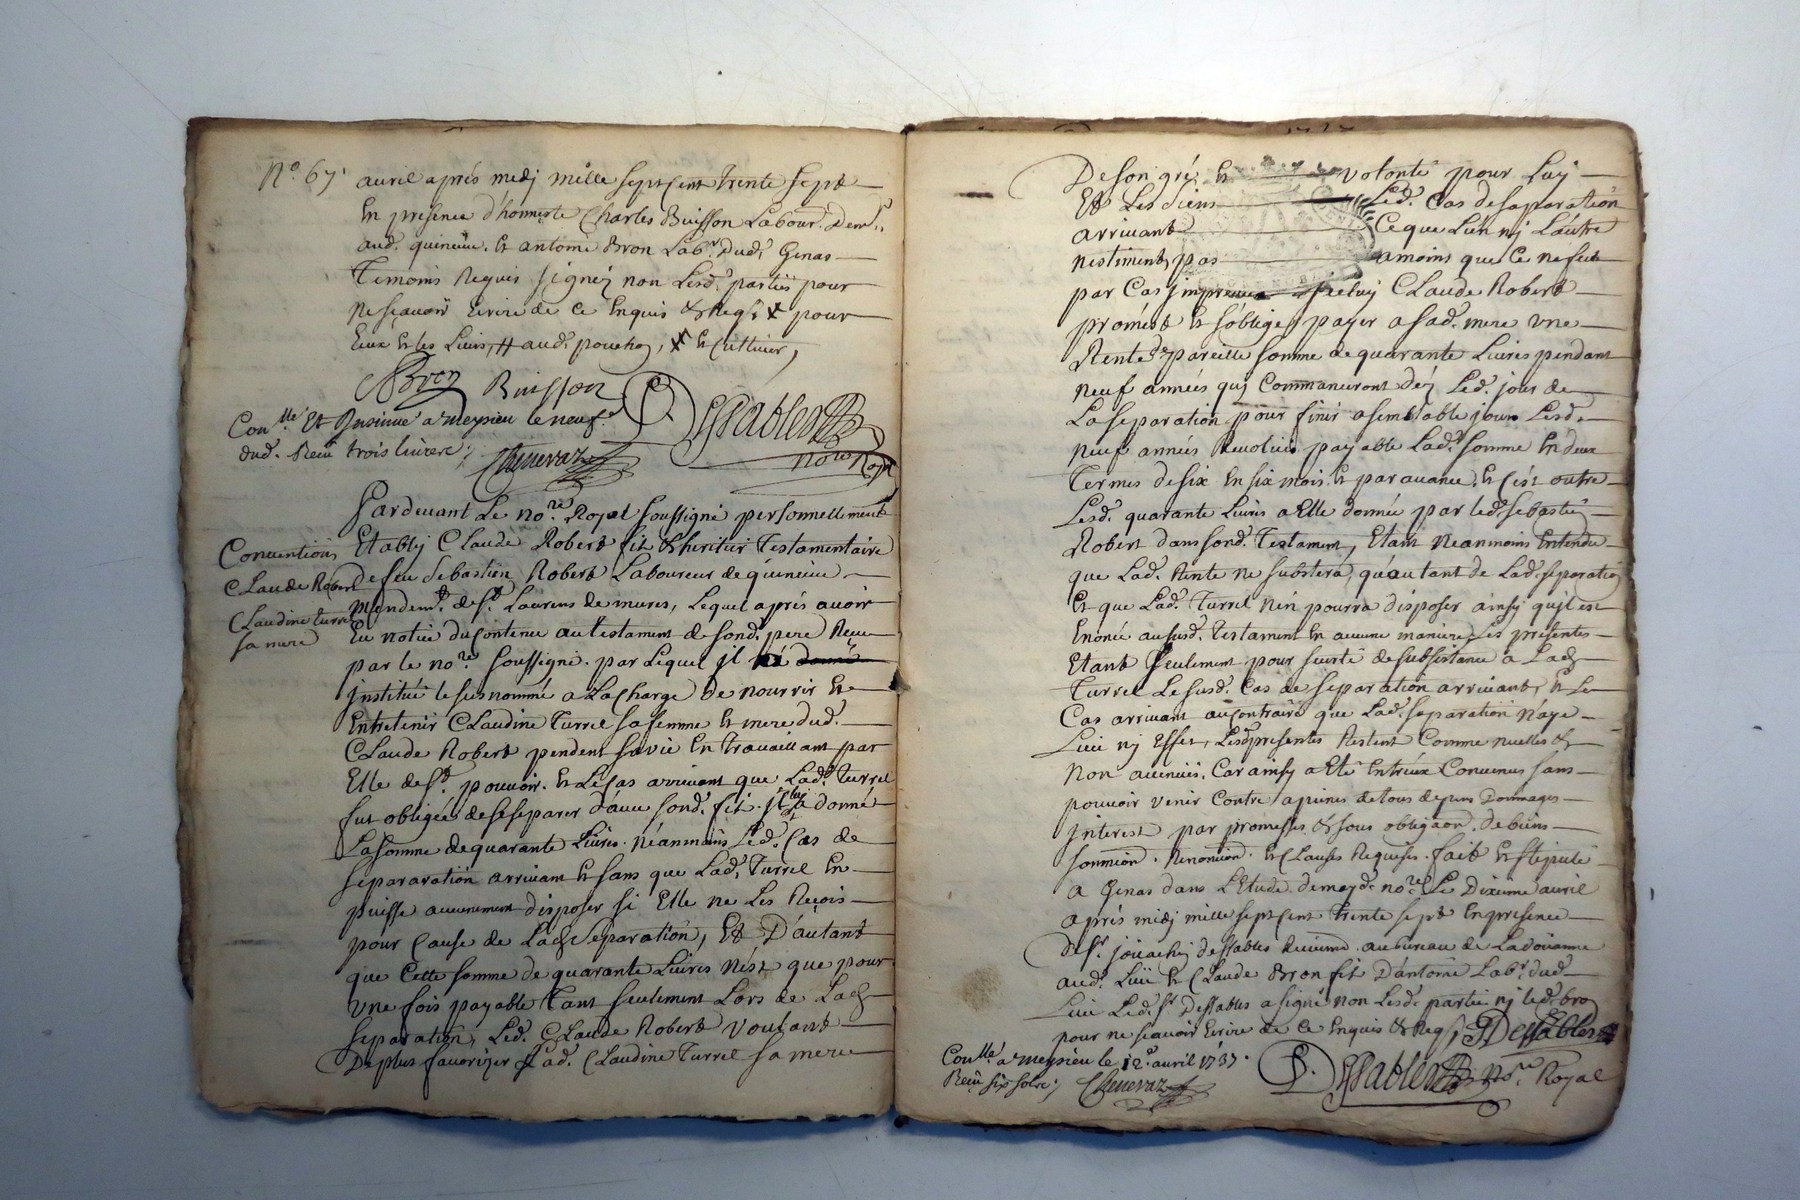 N.o 67.
avril aprés medj mille sept Cent trente sept
En presence d'honneste Charles Buisson Labour.r dem.t
aud. quineuve. Et antoine Bron Lab.r Dud. Genas
Temoins Requis signéz non Lesd. parties pour
ne sçavoir Ecrire de Ce Enquis & Req.s x pour
Eux et les Leurs, # aud. pouchoz, x et Cultiver,
ABron Buisson
Con.lle Et Insinué a meysieu le neuf.e
dud. Receu trois livres;
Chenevaz
DesSables
no.re Royal
Pardevant Le no.re Royal soussigné personnellement
Conventions
Claude Robert
Claudine turrel
sa mere
Etablj Claude Robert fils & heritier Testamentaire
de feu Sebastien Robert Laboureur de quineuve
mandem.t de S.t Laurens de mures, Lequel aprés avoir
Eu notice du Contenu au Testament de sond. pere Receu
par le no.re soussigné. par Lequel il
institué le susnommé a La Charge de nourrir Et
Entretenir Claudine Turrel sa femme et mere dud.
Claude Robert pendent sa vie En Travaillant par
Elle de s.d pouvoir. Et Le Cas arrivant que Lad. Turrel
fut obligée de se separer d'avec sond. fils. il luj a donné
La somme de quarante Livres. Néanmoins Led. Cas de
separaration arrivant et sans que Lad. Turrel En
puisse aucunement disposer si Elle ne Les Reçois
pour Cause de Lad. Separation, Et D'autant
que Cette somme de quarante Livres n'est que pour
une fois payable Tant seulement Lors de Lad.
separation, Led. Claude Robert voulant
De plus favorizer Lad. Claudine Turrel sa mere
De son gré. Et volonté pour Luy
Et Les siens Led. Cas de saparation
arrivant Ce que L'un nj L'autre
n'estiment pas amoins que Ce ne fut
par Cas impreveu iceluy Claude Robert
promést et s'oblige payer a sad. mere une
Rente de pareille somme de quarante Livres pendant
neuf années quj Commanceront déz Led. jour de
La separation pour finir a semblable jour Lesd.
neuf années Revolües payable Lad. somme En deux
Termes de six En six mois. Et par avance. Et C'ést outre
Lesd. quarante Livres a Elle donnée par led. Sebastien
Robert dans sond. Testament, Etant Neanmoins Entendu
que Lad. Rente ne substera, qu'autant de Lad. separation
Et que Lad. Turrel n'en pourra disposer ainsy qu'il est
Enoncé au susd. Testament En aucune maniere Les presentes
Etant seulement pour seurté de subsistance a Lad.
Turrel Le susd. Cas de separation arrivant, Et Le
Cas arrivant au Contraire que Lad. separation N'aye
Lieu nj Effet, Lesd. presentes Restent Comme nuelles &
Non avenües. Car ainsy a Eté Entr'eux Convenus sans
pouvoir venir Contre a peines de tous depens Dommages
interest par promesses. & sous obligãon. de biens
soumiõn. Renonciõn. Et Clauses Requises. fait Et stipulé
A Genas dans L'Etude de moyd. no.re Le Dixieme avril
aprés midj mille sept Cent Trente sept En presence
De s.r jouachin dessables Receveur au bureau de La doüanne
aud. Lieu Et Claude Bron fils D'antoine Lab.r dud.
Lieu Led. s.r Dessables a signé non Lesd. partie nj led. bron
pour ne sçavoir Ecrire de Ce Enquis & Req.s JDessables
Con.lle a meysieu le 12.e avril 1737.
Receu six sols;
Chenevaz
DesSables no.re Royal